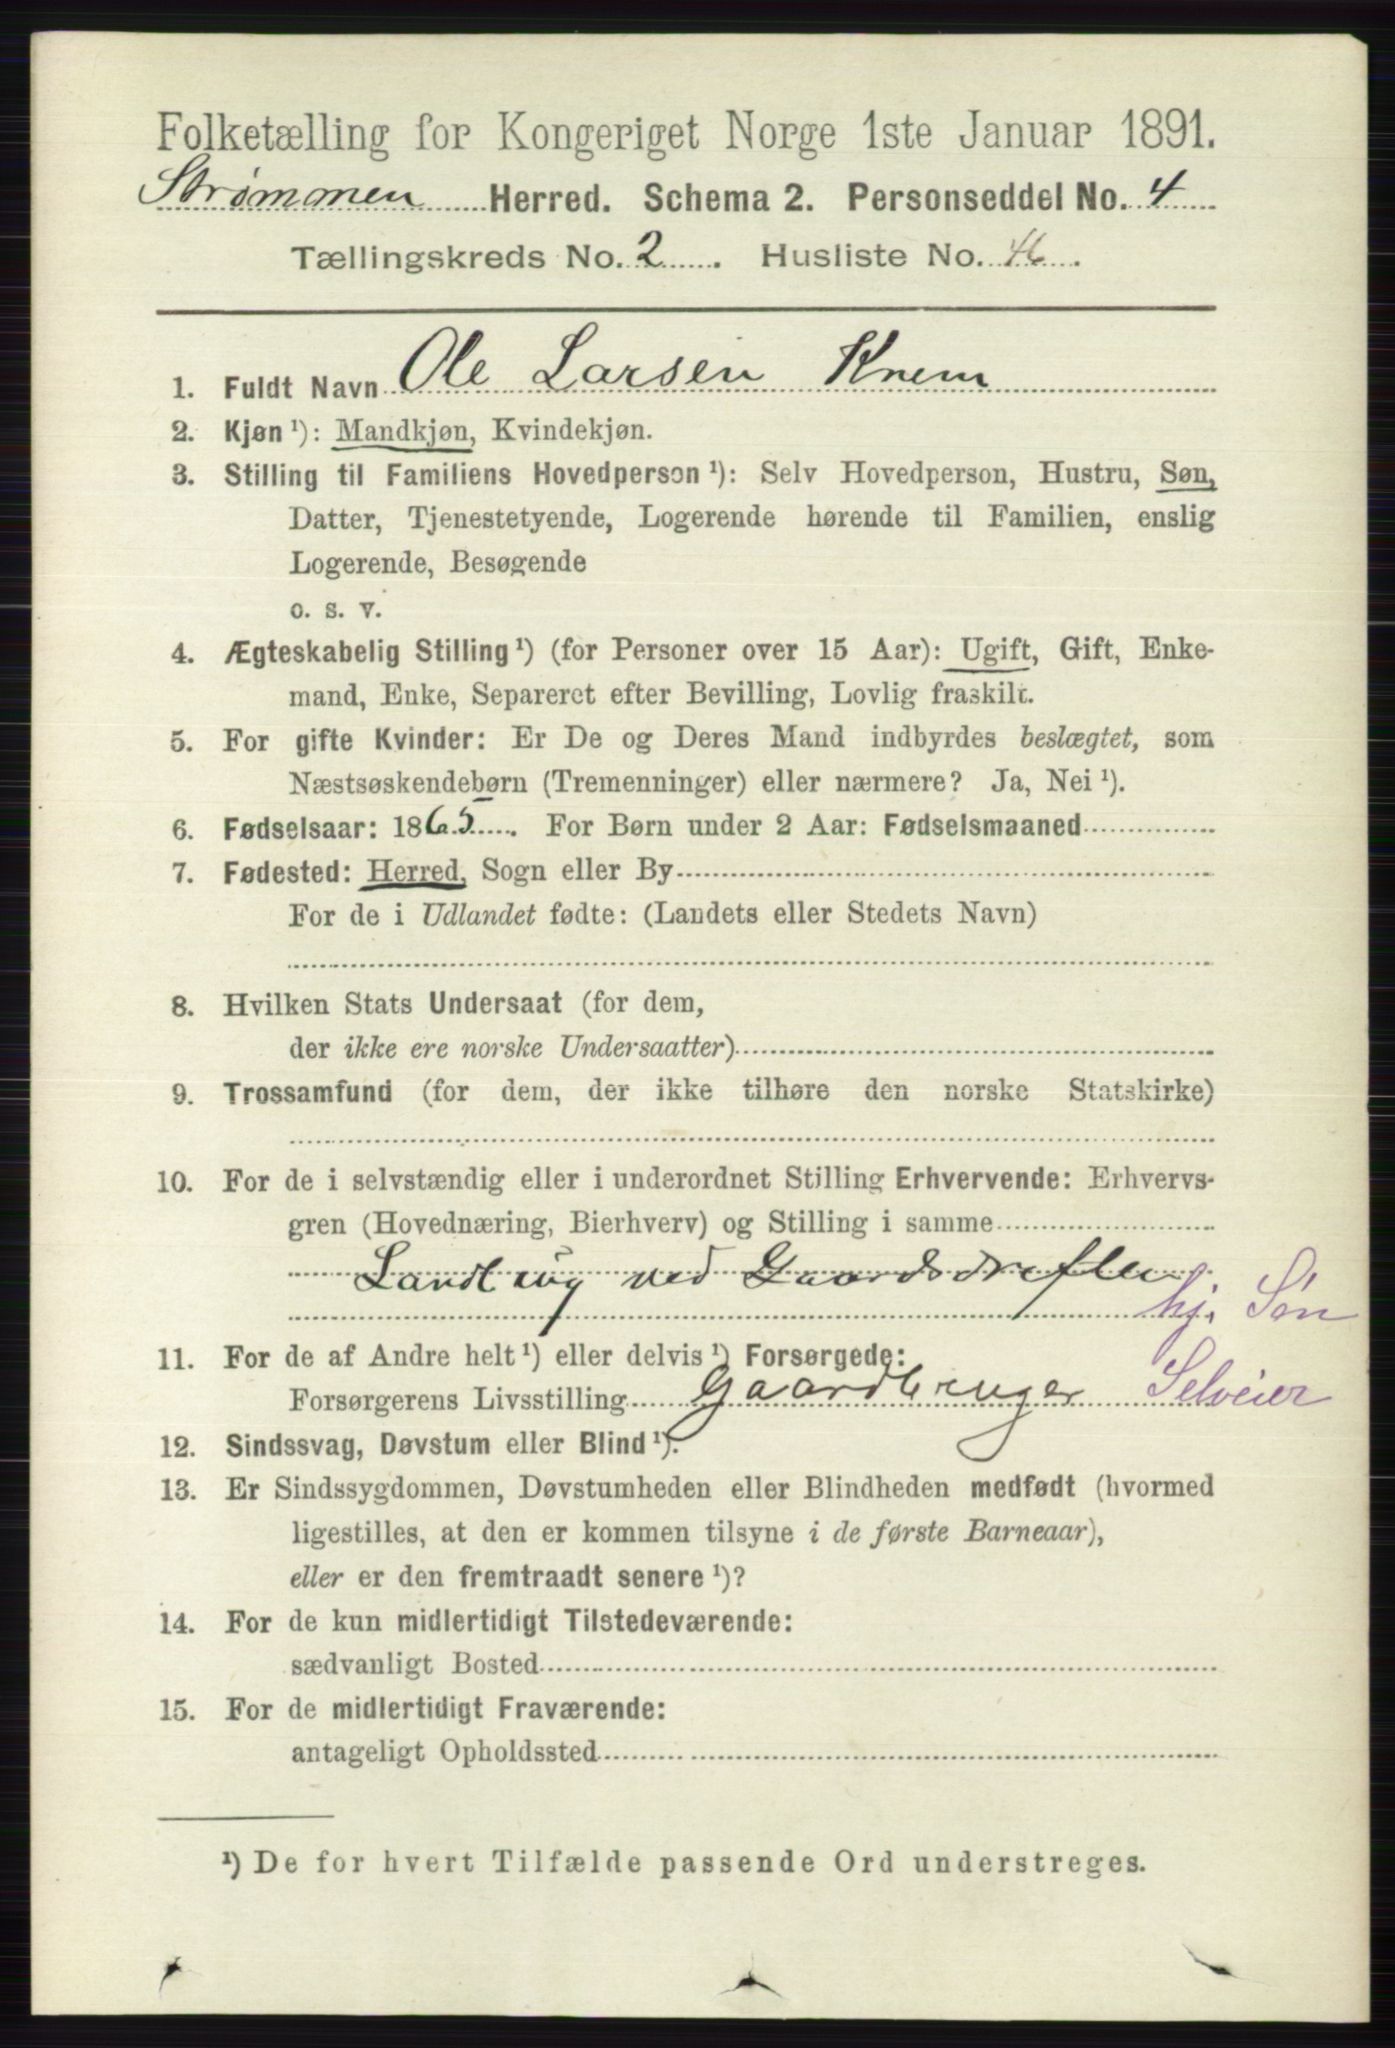 Folketælling for Kongeriget Norge 1ste Januar 1891.
Strømmen Herred. Schema 2. Personseddel No. 4
Tællingskreds No. 2. Husliste No. 46.
1. Fuldt Navn Ole Larsen Knem
2. Kjøn ¹): Mandkjøn, Kvindekjøn.
3. Stilling til Familiens Hovedperson ¹): Selv Hovedperson, Hustru, Søn,
Datter, Tjenestetyende, Logerende hørende til Familien, enslig
Logerende, Besøgende
o. s. v.
4. Ægteskabelig Stilling ¹) (for Personer over 15 Aar): Ugift, Gift, Enke-
mand, Enke, Separeret efter Bevilling, Lovlig fraskilt.
5. For gifte Kvinder: Er De og Deres Mand indbyrdes beslægtet, som
Næstsøskendebørn (Tremenninger) eller nærmere? Ja, Nei ¹).
6. Fødselsaar: 1865. For Børn under 2 Aar: Fødselsmaaned
7. Fødested: Herred, Sogn eller By
For de i Udlandet fødte: (Landets eller Stedets Navn)
8. Hvilken Stats Undersaat (for dem,
der ikke ere norske Undersaatter)
9. Trossamfund (for dem, der ikke tilhøre den norske Statskirke)
10. For de i selvstændig eller i underordnet Stilling Erhvervende: Erhvervs-
gren (Hovednæring, Bierhverv) og Stilling i samme
Landbrug ved Gaardsdriften
hj. Søn
11. For de af Andre helt ¹) eller delvis ¹) Forsørgede:
Forsørgerens Livsstilling Gaardbruger Selveier
12. Sindssvag, Døvstum eller Blind ¹).
13. Er Sindssygdommen, Døvstumheden eller Blindheden medfødt (hvormed
ligestilles, at den er kommen tilsyne i de første Barneaar),
eller er den fremtraadt senere ¹)?
14. For de kun midlertidigt Tilstedeværende:
sædvanligt Bosted
15. For de midlertidigt Fraværende:
antageligt Opholdssted
¹) De for hvert Tilfælde passende Ord understreges.